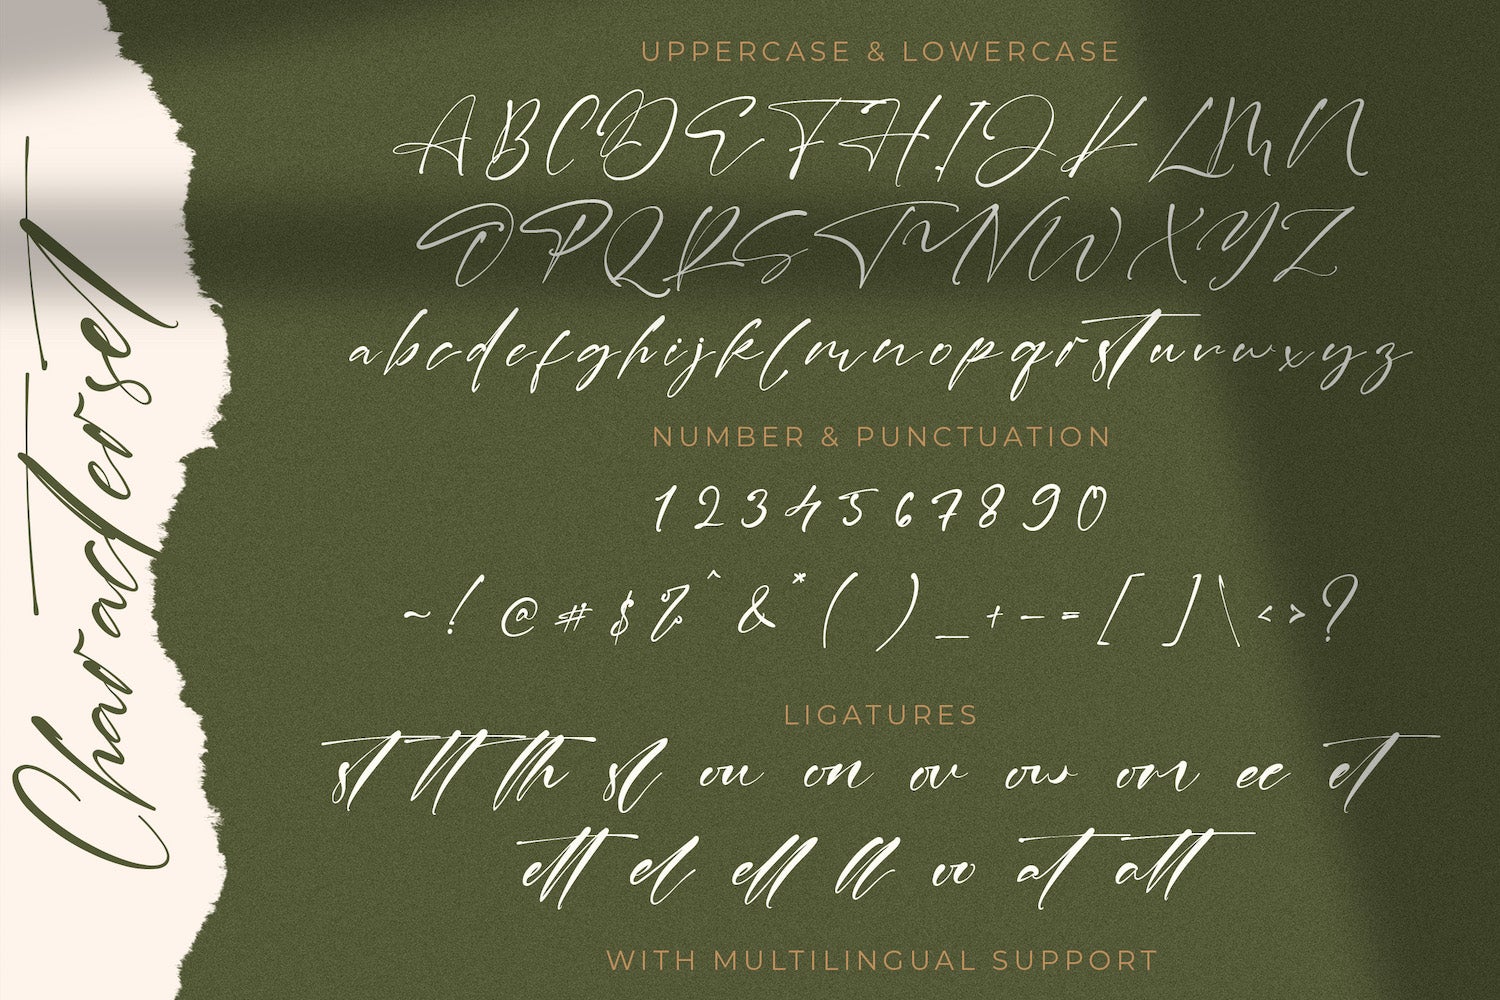 Characterset
UPPERCASE & LOWERCASE
A B C D E F H I J K L M N
O P Q R S T U V W X Y Z
a b c d e f g h i j k l m n o p q r s t u v w x y z
NUMBER & PUNCTUATION
1 2 3 4 5 6 7 8 9 0
~ ! @ # $ % ^ & * ( ) _ + - = [ ] \ < > ?
LIGATURES
st tt th sl ou on ov ow om ee et
ett el ell ll oo at att
WITH MULTILINGUAL SUPPORT